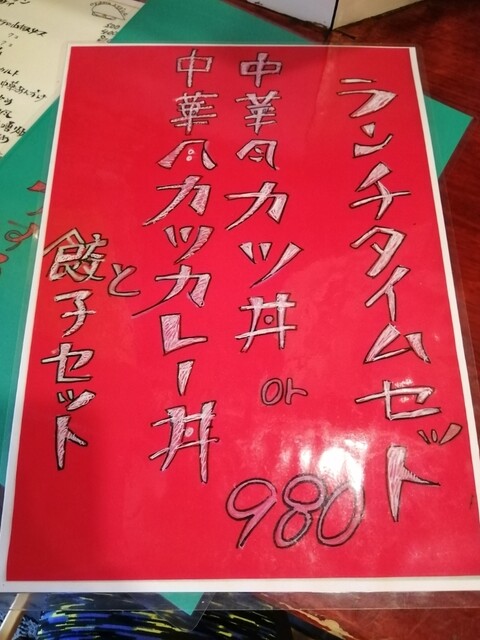 ランチタイムセット
中華風カツ丼 or
中華風カツカレー丼
と
餃子セット
980